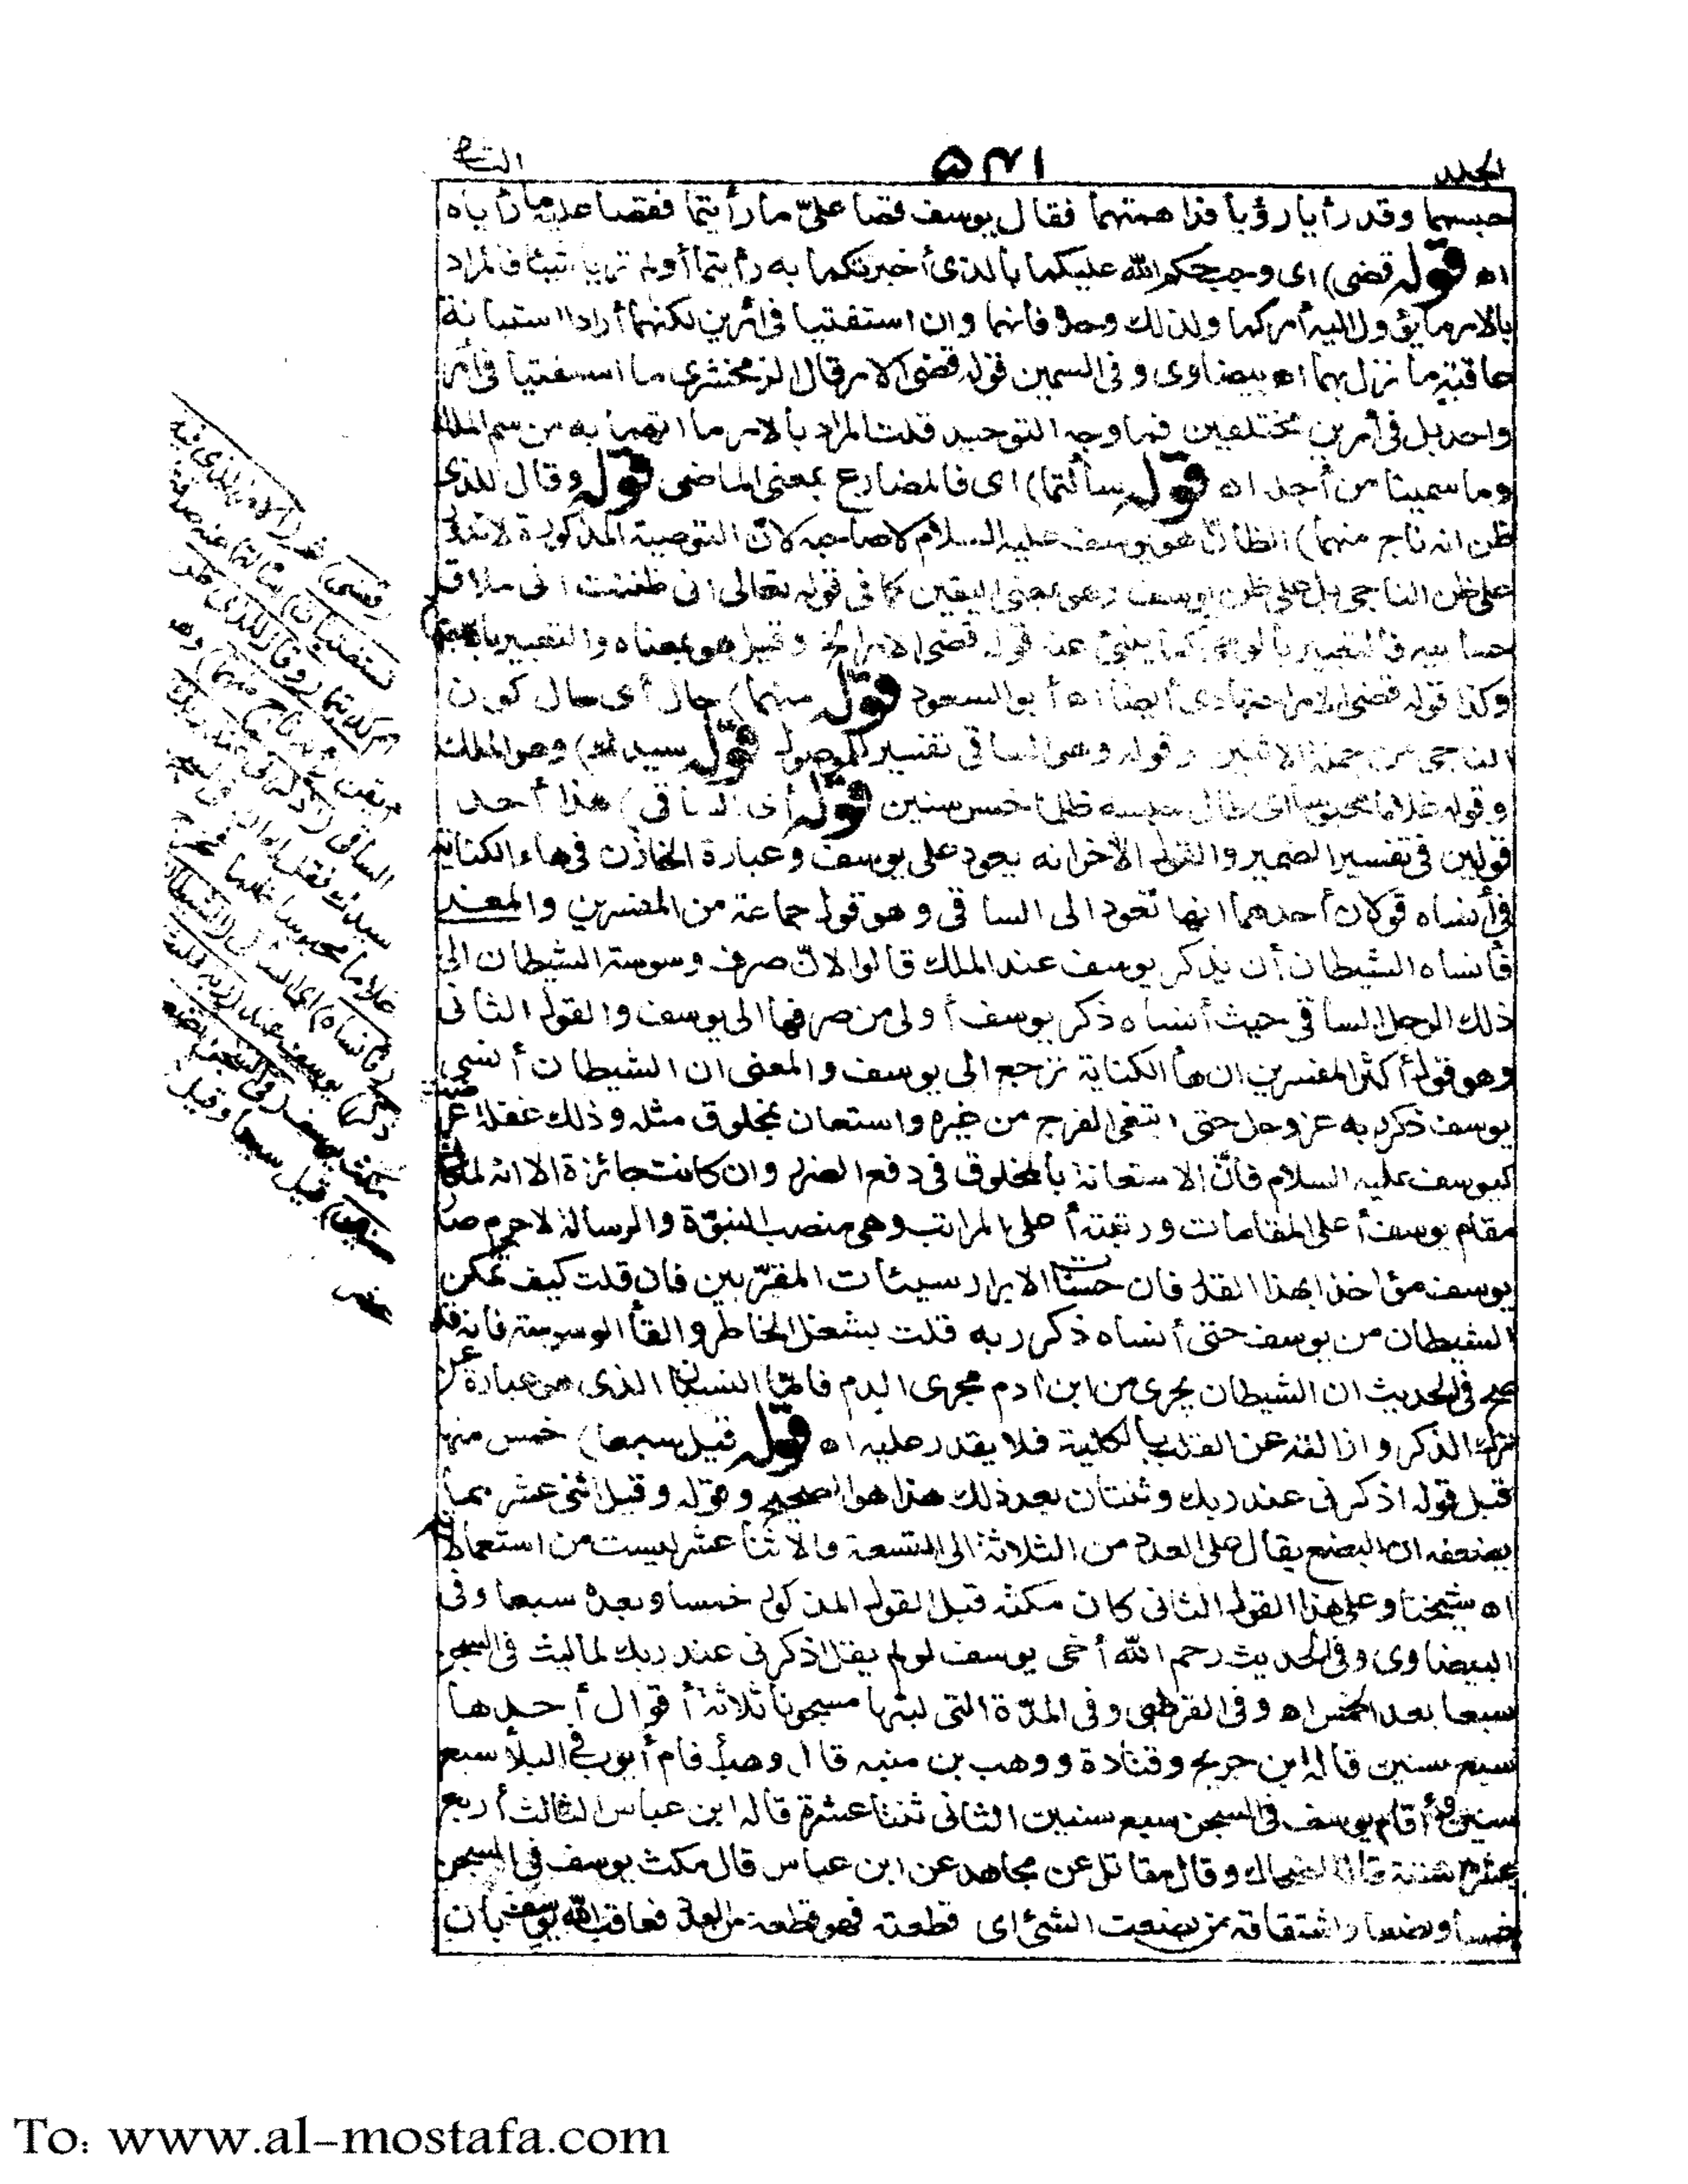 المجلد ٥٤١ الثانى
حبسهما وقد رأيا رؤيا فزاهمتهما فقال يوسف قصا علىّ ما رأيتما فقصا عليه ما رأياه
اه قوله قضى) اى وجب حكم الله عليكما بالذى أخبرتكما به رأيتما أولم تريا شيئا فالمراد
بالامر ما يؤول اليه أمركما ولذلك وحده فانهما وان استفتيا فى أمرين لكنهما أرادا استبانة
عاقبة ما نزل بهما اه بيضاوى وفى السمين قوله قضى الامر قال الزمخشرى ما استفتيا فى أمر
واحد بل فى أمرين مختلفين فما وجه التوحيد قلت المراد بالامر ما اتهما به من سم الملك
وما سجنا من أجله اه قوله سألتما) اى فالمضارع بمعنى الماضى قوله وقال للذى
ظن انه ناج منهما) الظانّ هو يوسف عليه السلام لا صاحبه لانّ التوصية المذكورة لا تدور
على ظن الناجى بل على ظن يوسف وهو بمعنى اليقين كما فى قوله تعالى انى ظننت انى ملاق
حسابيه فالتعبير بالوحى كما ينبئ عنه قوله قضى الامر الخ وقيل هو بمعناه والتعبير بالاجتهاد
وكذا قوله قضى الامر اجتهادى أيضا اه أبو السعود قوله منهما) حال أى حال كون
الناجى من جملة الاثنين وقوله وهو الساقى تفسير للموصول قوله سيدك) وهو الملك
وقوله غلاما محبوسا اى طال حبسه ظلما خمس سنين قوله أى الساقى) هذا أحد
قولين فى تفسير الضمير والقول الآخر انه يعود على يوسف وعبارة الخازن فى هاء الكناية
فى أنساه قولان أحدهما انها تعود الى الساقى وهو قول جماعة من المفسرين والمعنى
فأنساه الشيطان أن يذكر يوسف عند الملك قالوا لانّ صرف وسوسة الشيطان الى
ذلك الرجل الساقى حيث أنساه ذكر يوسف أولى من صرفها الى يوسف والقول الثانى
وهو قول أكثر المفسرين ان هاء الكناية ترجع الى يوسف والمعنى ان الشيطان أنسى
يوسف ذكر ربه عز وجل حتى ابتغى الفرج من غيره واستعان بمخلوق مثله وذلك غفلة عرضت
ليوسف عليه السلام فانّ الاستعانة بالمخلوق فى دفع الضرر وان كانت جائزة الا انه لما كان
مقام يوسف أعلى المقامات ورتبته أعلى المراتب وهى منصب النبوّة والرسالة لاجرم صار
يوسف مؤاخذا بهذا القدر فان حسنات الابرار سيئات المقرّبين فان قلت كيف تمكن
الشيطان من يوسف حتى أنساه ذكر ربه قلت بشغل الخاطر والقاء الوسوسة فانه قد
صح فى الحديث ان الشيطان يجرى من ابن ادم مجرى الدم فامّا النسيان الذى هو عبارة عن
ترك الذكر وازالته عن القلب بالكلية فلا يقدر عليه اه قوله قيل سبعا) خمس منها
قبل قوله اذكرنى عند ربك وثنتان بعد ذلك هذا هو الصحيح وقوله وقيل اثنى عشر بما
يضعفه ان البضع يقال على العدد من الثلاثة الى التسعة والاثنا عشر ليست من استعمالاته
اه شيخنا وعلى هذا القول الثانى كان مكثه قبل القول المذكور خمسا وبعده سبعا وفى
البيضاوى وفى الحديث رحم الله أخى يوسف لو لم يقل اذكرنى عند ربك لما لبث فى السجن
سبعا بعد الخمس اه وفى القرطبى وفى المدّة التى لبثها مسجونا ثلاثة أقوال أحدها
سبع سنين قاله ابن جريج وقتادة ووهب بن منبه قال وهب أقام أيوب فى البلاء سبع
سنين وأقام يوسف فى السجن سبع سنين الثانى ثنتا عشرة قاله ابن عباس الثالث أربع
عشرة سنة قاله الضحاك وقال مقاتل عن مجاهد عن ابن عباس قال مكث يوسف فى السجن
خمسا وبضعا واشتقاقه من بضعت الشئ اى قطعته فهو قطعة من العدد فعاقب الله يوسف بأن
(قضى) الامر الذى فيه
تستفتيان) سألتما عنه
(وقال للذى ظن)
أيقن انه ناج منهما) وهو
الساقى (اذكرنى عند ربك)
سيدك فقل له ان فى السجن
غلاما محبوسا ظلما فخرج
(فأنساه) اى الساقى (الشيطان
ذكر) يوسف عند (ربه فلبث)
مكث يوسف (فى السجن بضع
سنين) قيل سبعا وقيل
To: www.al-mostafa.com